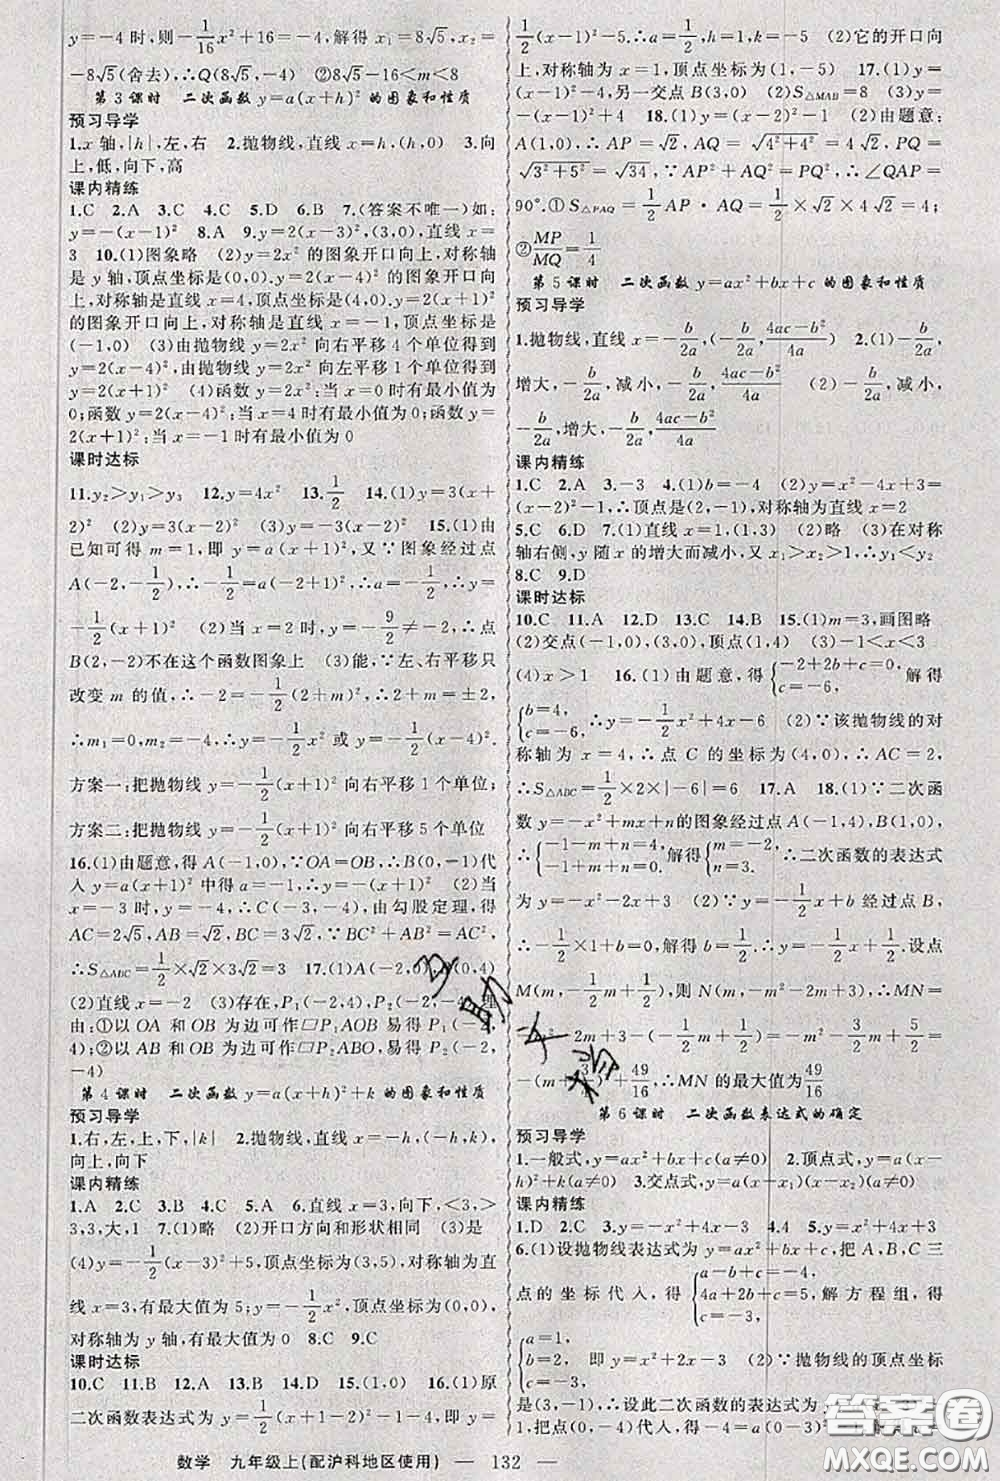 y=-4时,则-1/16x²+16=-4,解得x₁=8√5,x₂=
-8√5(舍去),∴Q(8√5,-4)　②8√5-16<m<8
第3课时　二次函数y=a(x+h)²的图象和性质
预习导学
1.x轴,|h|,左,右　2.抛物线,直线x=h,(h,0)　3.向
上,低,向下,高
课内精练
1.C　2.A　3.C　4.C　5.D　6.B　7.(答案不唯一)如:
y=-(x-3)²　8.A　9.y=-(x-3)²,(3,0),直线x=
3　10.(1)图象略　(2)y=2x²的图象开口向上,对称轴
是y轴,顶点坐标是(0,0).y=2(x-4)²的图象开口向
上,对称轴是直线x=4,顶点坐标是(4,0).y=2(x+1)²
的图象开口向上,对称轴是直线x=-1,顶点坐标是
(-1,0)　(3)由抛物线y=2x²向右平移4个单位得到
y=2(x-4)²,由抛物线y=2x²向左平移1个单位得到
y=2(x+1)²　(4)函数y=2x²:当x=0时有最小值为
0;函数y=2(x-4)²:当x=4时有最小值为0;函数y=
2(x+1)²:当x=-1时有最小值为0
课时达标
11.y₂>y₁>y₃　12.y=4x²　13.1/2　14.(1)y=3(x+
2)²　(2)y=3(x-2)²　(3)y=-3(x-2)²　15.(1)由
已知可得m=1,即y=a(x+1)²,又∵图象经过点
A(-2,-1/2),∴-1/2=a(-2+1)²,∴a=-1/2,∴y=-
1/2(x+1)²　(2)当x=2时,y=-9/2≠-2,∴点
B(2,-2)不在这个函数图象上　(3)能,∵左、右平移只
改变m的值,∴-2=-1/2(2+m)²,∴2+m=±2,
∴m₁=0,m₂=-4,∴y=-1/2x²或y=-1/2(x-4)².
方案一:把抛物线y=-1/2(x+1)²向右平移1个单位;
方案二:把抛物线y=-1/2(x+1)²向右平移5个单位
16.(1)由题意,得A(-1,0),∵OA=OB,∴B(0,-1)代
入y=a(x+1)²中得a=-1,∴y=-(x+1)²　(2)当
x=-3时,y=-4,∴C(-3,-4),由勾股定理,得
AC=2√5,AB=√2,BC=3√2,∵BC²+AB²=AC²,
∴S△ABC=1/2×√2×3√2=3　17.(1)A(-2,0),B(0,4)
(2)直线x=-2　(3)存在,P₁(-2,4),P₂(-2,-4).理
由:①以OA和OB为边可作▱P₁AOB易得P₁(-2,
4);②以AB和OB为边可作▱P₂ABO,易得P₂(-2,
-4)
第4课时　二次函数y=a(x+h)²+k的图象和性质
预习导学
1.右,左,上,下,|k|　2.抛物线,直线x=-h,(-h,k)
向上,向下
课内精练
1.A　2.C　3.B　4.A　5.A　6.直线x=3,向下,<3,>
3,3,大,1　7.(1)略　(2)开口方向和形状相同　(3)是
(4)y=-1/2(x-3)²+5,顶点坐标为(3,5),对称轴为直
线x=3,有最大值为5;y=-1/2x²,顶点坐标为(0,0),
对称轴为y轴,有最大值为0　8.C　9.C
课时达标
10.C　11.B　12.A　13.B　14.D　15.(1,0)　16.(1)原
二次函数表达式为y=1/2(x+2-1)²-1-4,即y=
1/2(x-1)²-5.∴a=1/2,h=1,k=-5　(2)它的开口向
上,对称轴为x=1,顶点坐标为(1,-5)　17.(1)y=(x-
1)²-4,另一交点B(3,0)　(2)S△MAB=8　(3)y=
-(x-1)²+4　18.(1)y=(x-2)²-1　(2)由题意:
A(1,0),∴AP=√2,AQ=√(4²+4²)=4√2,PQ=
√(3²+5²)=√34,∵AP²+AQ²=PQ²,∴∠QAP=
90°.①S△PAQ=1/2AP·AQ=1/2×√2×4√2=4;
②MP/MQ=1/4
第5课时　二次函数y=ax²+bx+c的图象和性质
预习导学
1.抛物线,直线x=-b/2a,(-b/2a,(4ac-b²)/4a)　2.(1)-b/2a,
增大,-b/2a,减小,-b/2a,(4ac-b²)/4a　(2)-b/2a,减小,
-b/2a,增大,-b/2a,(4ac-b²)/4a
课内精练
1.C　2.A　3.-3　4.(1)b=-4　(2)y=x²-4x+3=
(x-2)²-1,∴顶点是(2,-1),对称轴为直线x=2
5.C　6.D　7.(1)直线x=1,(1,3)　(2)略　(3)在对称
轴右侧,y随x的增大而减小,又x₁>x₂>1,∴y₁<y₂
8.C　9.D
课时达标
10.C　11.A　12.D　13.C　14.B　15.(1)m=3,画图略
(2)交点(-1,0),(3,0),顶点(1,4)　(3)-1<x<3
(4)x>1　16.(1)由题意,得{-2+2b+c=0, c=-6,解得
{b=4, c=-6,∴y=-1/2x²+4x-6　(2)∵该抛物线的对
称轴为x=4,∴点C的坐标为(4,0),∴AC=2,
∴S△ABC=1/2×2×|-6|=6　17.A　18.(1)∵二次函
数y=-x²+mx+n的图象经过点A(-1,4),B(1,0),
∴{-1-m+n=4, -1+m+n=0,解得{m=-2, n=3.∴二次函数的表达式
为y=-x²-2x+3　(2)∵y=-1/2x+b经过点B,
∴-1/2×1+b=0,解得b=1/2.∴y=-1/2x+1/2,设点
M(m,-1/2m+1/2),则N(m,-m²-2m+3),∴MN=
-m²-2m+3-(-1/2m+1/2)=-m²-3/2m+5/2=
-(m+3/4)²+49/16,∴MN的最大值为49/16
第6课时　二次函数表达式的确定
预习导学
1.一般式,y=ax²+bx+c(a≠0)　2.顶点式,y=a(x-
h)²+k(a≠0)　3.交点式,y=a(x-x₁)(x-x₂)(a≠0)
课内精练
1.D　2.C　3.y=-x²+4x-3　4.4　5.y=x²+4x+3
6.(1)设抛物线表达式为y=ax²+bx+c,把A,B,C三
点的坐标代入,得{a-b+c=-4, 4a+2b+c=5, c=-3.解方程组,得
{a=1, b=2, c=-3.即y=x²+2x-3　(2)∵抛物线的顶点坐标
是(1,-3),∴设此二次函数的表达式为y=a(x-1)²-
1,把点(0,-4)代入,得-4=a
数学　九年级上(配沪科地区使用)　— 132 —
互助文档
答案圈
MXQE.COM